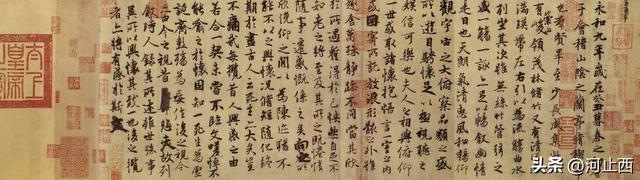 永和九年歲在癸丑暮春之初會
于會稽山陰之蘭亭脩稧事
也群賢畢至少長咸集此地
有峻領茂林脩竹又有清流激
湍暎帶左右引以為流觴曲水
列坐其次雖無絲竹管弦之
盛一觴一詠亦足以暢敘幽情
是日也天朗氣清惠風和暢仰
觀宇宙之大俯察品類之盛
所以遊目騁懷足以極視聽之
娛信可樂也夫人之相與俯仰
一世或取諸懷抱悟言一室之內
或因寄所託放浪形骸之外雖
趣舍萬殊靜躁不同當其欣
於所遇暫得於己怏然自足不
知老之將至及其所之既惓情
隨事遷感慨係之矣向之所
欣俛仰之閒以為陳迹猶不
能不以之興懷況脩短隨化終
期於盡古人云死生亦大矣豈
不痛哉每攬昔人興感之由
若合一契未嘗不臨文嗟悼不
能喻之於懷固知一死生為虛
誕齊彭殤為妄作後之視今
亦由今之視昔悲夫故列
敘時人錄其所述雖世殊事
異所以興懷其致一也後之攬
者亦將有感於斯文
太上皇帝
头条@河止西